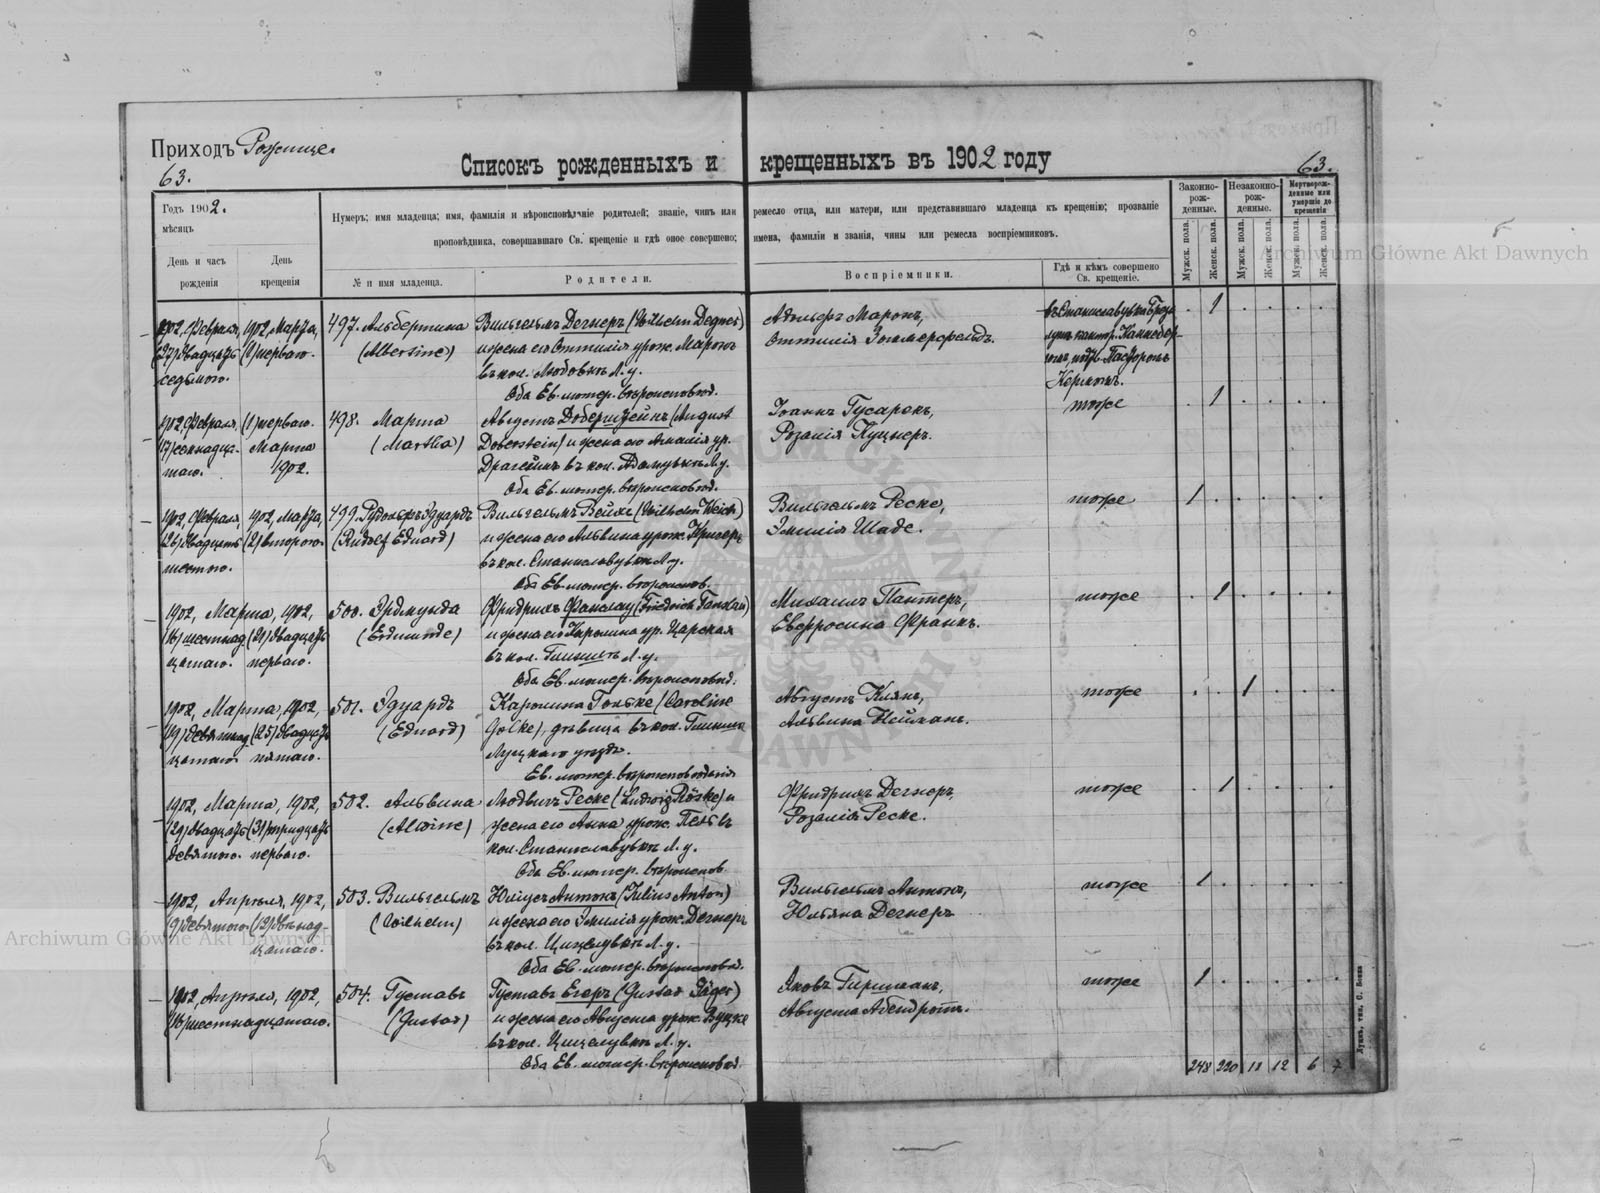 Приходъ Рожище
63.
Списокъ рожденныхъ и крещенныхъ въ 1902 году
63.
Годъ 1902.
мѣсяцъ
День и часъ рожденія
День крещенія
Нумеръ; имя младенца; имя, фамилія и вѣроисповѣданіе родителей; званіе, чинъ или ремесло отца, или матери, или представившаго младенца къ крещенію; прозваніе
проповѣдника, совершавшаго Св. крещеніе и гдѣ оное совершено; имена, фамиліи и званія, чины или ремесла воспріемниковъ.
№ и имя младенца.
Родители.
Воспріемники.
Гдѣ и кѣмъ совершено Св. крещеніе.
Законно-рож-денные.
Незаконно-рож-денные.
Мертворож-денные или умершіе до крещенія
Мужск. пола.
Женск. пола.
Мужск. пола.
Женск. пола.
Мужск. пола.
Женск. пола.
1902, Февраля,
(27) двадцать
седьмого.
1902, Марта,
(1) перваго.
497. Альбертина
(Albertine)
Вильгельмъ Дегнеръ (Wilhelm Degner)
и жена его Оттилія урож. Маронъ
въ кол. Любовкѣ Л. у.
Оба Ев. лютер. вѣроисповѣд.
Адольфъ Маронъ,
Оттилія Зоммерфельдъ.
въ Станиславувкѣ
Пасторомъ
1
1902, Февраля,
(17) семнадца-
таго.
(1) перваго.
Марта
1902.
498. Марта
(Martha)
Августъ Доберштейнъ (August
Doberstein) и жена его Амалія ур.
въ кол. Л. у.
Оба Ев. лютер. вѣроисповѣд.
Іоаннъ Гусарекъ,
Розалія Куцнеръ.
тоже
1
1902, Февраля
(26) двадцать
шестого.
1902, Марта,
(2) второго.
499. Рудольфъ Эдуардъ
(Rudolf Eduard)
Вильгельмъ Вейхъ (Wilhelm Weich)
и жена его Альвина урож. Кригеръ
въ кол. Станиславувкѣ Л. у.
Оба Ев. лютер. вѣроисповѣд.
Вильгельмъ Реске,
Эмилія Шаде.
тоже
1
1902, Марта,
(16) шестнад-
цатаго.
1902,
(21) двадцать
перваго.
500. Эрдмунда
(Erdmunde)
Фридрихъ Фанслау (Friedrich Fanslau)
и жена его Каролина ур. Царская
въ кол. Л. у.
Оба Ев. лютер. вѣроисповѣд.
Михаилъ Пантеръ,
Евфросина Франкъ.
тоже
1
1902, Марта,
(19) девятнад-
цатаго
1902,
(25) двадцать
пятаго.
501. Эдуардъ
(Eduard)
Каролина Гольке (Caroline
Golke), дѣвица въ кол.
Луцкаго уѣзда.
Ев. лютер. вѣроисповѣданія
Августъ Клянъ,
Альвина Нейманъ.
тоже
1
1902, Марта,
(29) двадцать
девятого.
1902,
(31) тридцать
перваго.
502. Альвина
(Alwine)
Людвигъ Реске (Ludwig Röske) и
жена его Анна урож. въ
кол. Станиславувкѣ Л. у.
Оба Ев. лютер. вѣроисповѣд.
Фридрихъ Дегнеръ,
Розалія Реске.
тоже
1
1902, Апрѣля,
(9) девятого.
1902,
(12) двѣнад-
цатаго.
503. Вильгельмъ
(Wilhelm)
Юліусъ Антонъ (Julius Anton)
и жена его Эмилія урож. Дегнеръ
въ кол. Цицелувкѣ Л. у.
Оба Ев. лютер. вѣроисповѣд.
Вильгельмъ Антонъ,
Юльяна Дегнеръ
тоже
1
1902, Апрѣля,
(16) шестнадцатаго.
1902,
504. Густавъ
(Gustav)
Густавъ Егеръ (Gustav Jäger)
и жена его Августа урож.
въ кол. Цицелувкѣ Л. у.
Оба Ев. лютер. вѣроисповѣд.
Яковъ Гиршманъ,
Августа Абендротъ.
тоже
1
248 220 18 12 6 7
Archiwum Główne Akt Dawnych
Archiwum Główne Akt Dawnych